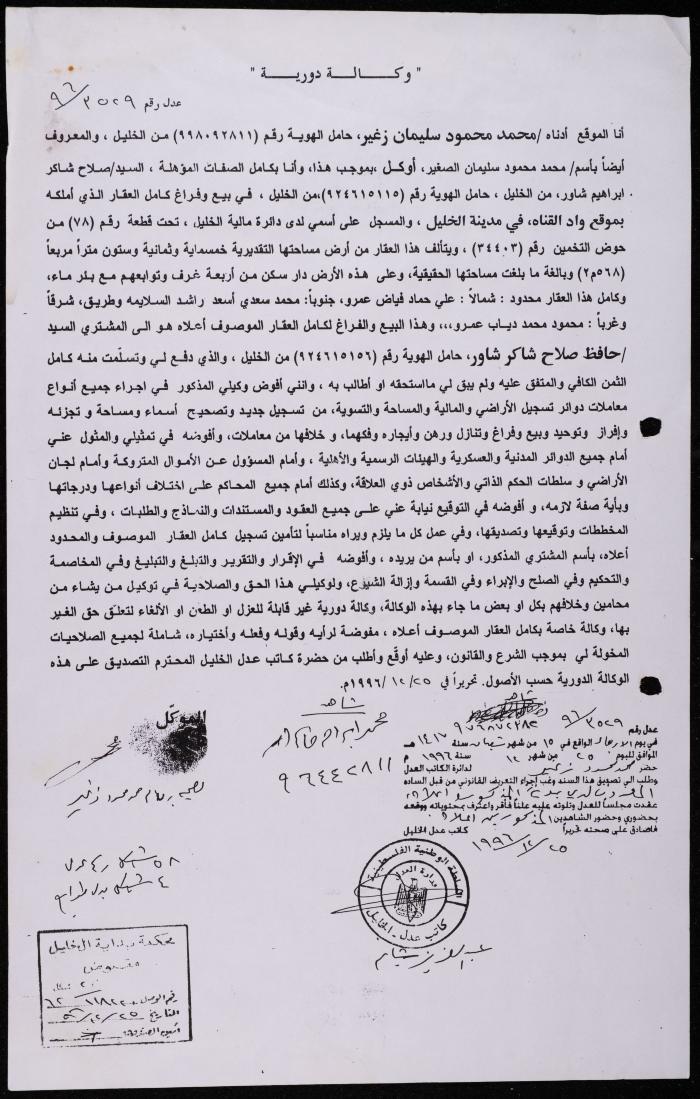 " وكـــــالـــة دوريـــة "
عدل رقم ٩٦/٣٥٢٩
أنا الموقع أدناه /محمد محمود سليمان زغير، حامل الهوية رقم (٩٩٨٠٩٢٨١١) من الخليل ، والمعروف
أيضاً بأسم/ محمد محمود سليمان الصغير، أوكل ،بموجب هذا، وأنا بكامل الصفات المؤهلة ، السيد/صلاح شاكر
ابراهيم شاور، من الخليل ، حامل الهوية رقم (٩٢٤٦١٥١١٥)،من الخليل ، في بيع وفراغ كامل العقار الذي أملكه
بموقع واد القناه، في مدينة الخليل ، والمسجل على أسمي لدى دائرة مالية الخليل ، تحت قطعة رقم (٧٨) من
حوض التخمين رقم (٣٤٤٠٣) ، ويتألف هذا العقار من أرض مساحتها التقديرية خمسماية وثمانية وستون متراً مربعاً
(٥٦٨م٢) وبالغة ما بلغت مساحتها الحقيقية، وعلى هذه الأرض دار سكن من أربعة غرف وتوابعهم مع بئر ماء،
وكامل هذا العقار محدود : شمالاً : علي حماد فياض عمرو، جنوباً: محمد سعدي أسعد راشد السلايمه وطريق، شرقاً
وغرباً : محمود محمد دياب عمرو،،، وهذا البيع والفراغ لكامل العقار الموصوف أعلاه هو الى المشتري السيد
/حافظ صلاح شاكر شاور، حامل الهوية رقم (٩٢٤٦١٥١٥٦) من الخليل ، والذي دفع لي وتسلّمت منه كامل
الثمن الكافي والمتفق عليه ولم يبق لي مااستحقه او أطالب به ، وانني أفوض وكيلي المذكور في اجراء جميع أنواع
معاملات دوائر تسجيل الأراضي والمالية والمساحة والتسوية، من تسجيل جديد وتصحيح أسماء ومساحة و تجزئه
وإفراز وتوحيد وبيع وفراغ وتنازل ورهن وأيجاره وفكهما، و خلافها من معاملات، وأفوضه في تمثيلي والمثول عني
أمام جميع الدوائر المدنية والعسكرية والهيئات الرسمية والأهلية ، وأمام المسؤول عن الأموال المتروكة وأمام لجان
الأراضي و سلطات الحكم الذاتي والأشخاص ذوي العلاقة، وكذلك أمام جميع المحاكم على اختلاف أنواعها ودرجاتها
وبأية صفة لازمه، و أفوضه في التوقيع نيابة عني على جميع العقود والمستندات والنماذج والطلبات ، وفي تنظيم
المخططات وتوقيعها وتصديقها، وفي عمل كل ما يلزم ويراه مناسباً لتأمين تسجيل كامل العقار الموصوف والمحدود
أعلاه، بأسم المشتري المذكور، او بأسم من يريده ، وأفوضه في الإقرار والتقرير والتبلغ والتبليغ وفي المخاصمة
والتحكيم وفي الصلح والإبراء وفي القسمة وإزالة الشيوع، ولوكيلي هذا الحق والصلاحية في توكيل من يشاء من
محامين وخلافهم بكل او بعض ما جاء بهذه الوكالة، وكالة دورية غير قابلة للعزل او الطعن او الألغاء لتعلق حق الغير
بها، وكالة خاصة بكامل العقار الموصوف أعلاه ، مفوضة لرأيه وقوله وفعله وأختياره، شاملة لجميع الصلاحيات
المخولة لي بموجب الشرع والقانون، وعليه أوقّع وأطلب من حضرة كاتب عدل الخليل المحترم التصديق على هذه
الوكالة الدورية حسب الأصول. تحريراً في ١٩٩٦/١٢/٢٥م.
الموكّل
شاهد
محمد ابراهيم
٩٦٤٤٢٨١١
شاهد
عدل رقم ٩٦/٣٥٢٩
في يوم الاربعاء الواقع في ١٥ من شهر شعبان سنة ١٤١٧ هـ
الموافق لليوم ٢٥ من شهر ١٢ سنة ١٩٩٦ م
حضر محمد محمود زغير لدائرة الكاتب العدل
وطلب الي تصديق هذا السند وغب إجراء التعريف القانوني من قبل الساده
المذكورين اعلاه
عقدت مجلساً للعدل وتلوته عليه علناً فأقر واعترف بمحتوياته ووقعه
بحضوري وحضور الشاهدين المذكورين اعلاه
فاصادق على صحته تحريراً كاتب عدل الخليل
١٩٩٦/١٢/٢٥
السلطة الوطنية الفلسطينية
وزارة العدل
كاتب عدل - الخليل
محكمة بداية الخليل
مقبوض
رقم الوصل
التاريخ ٩٦/١٢/٢٥